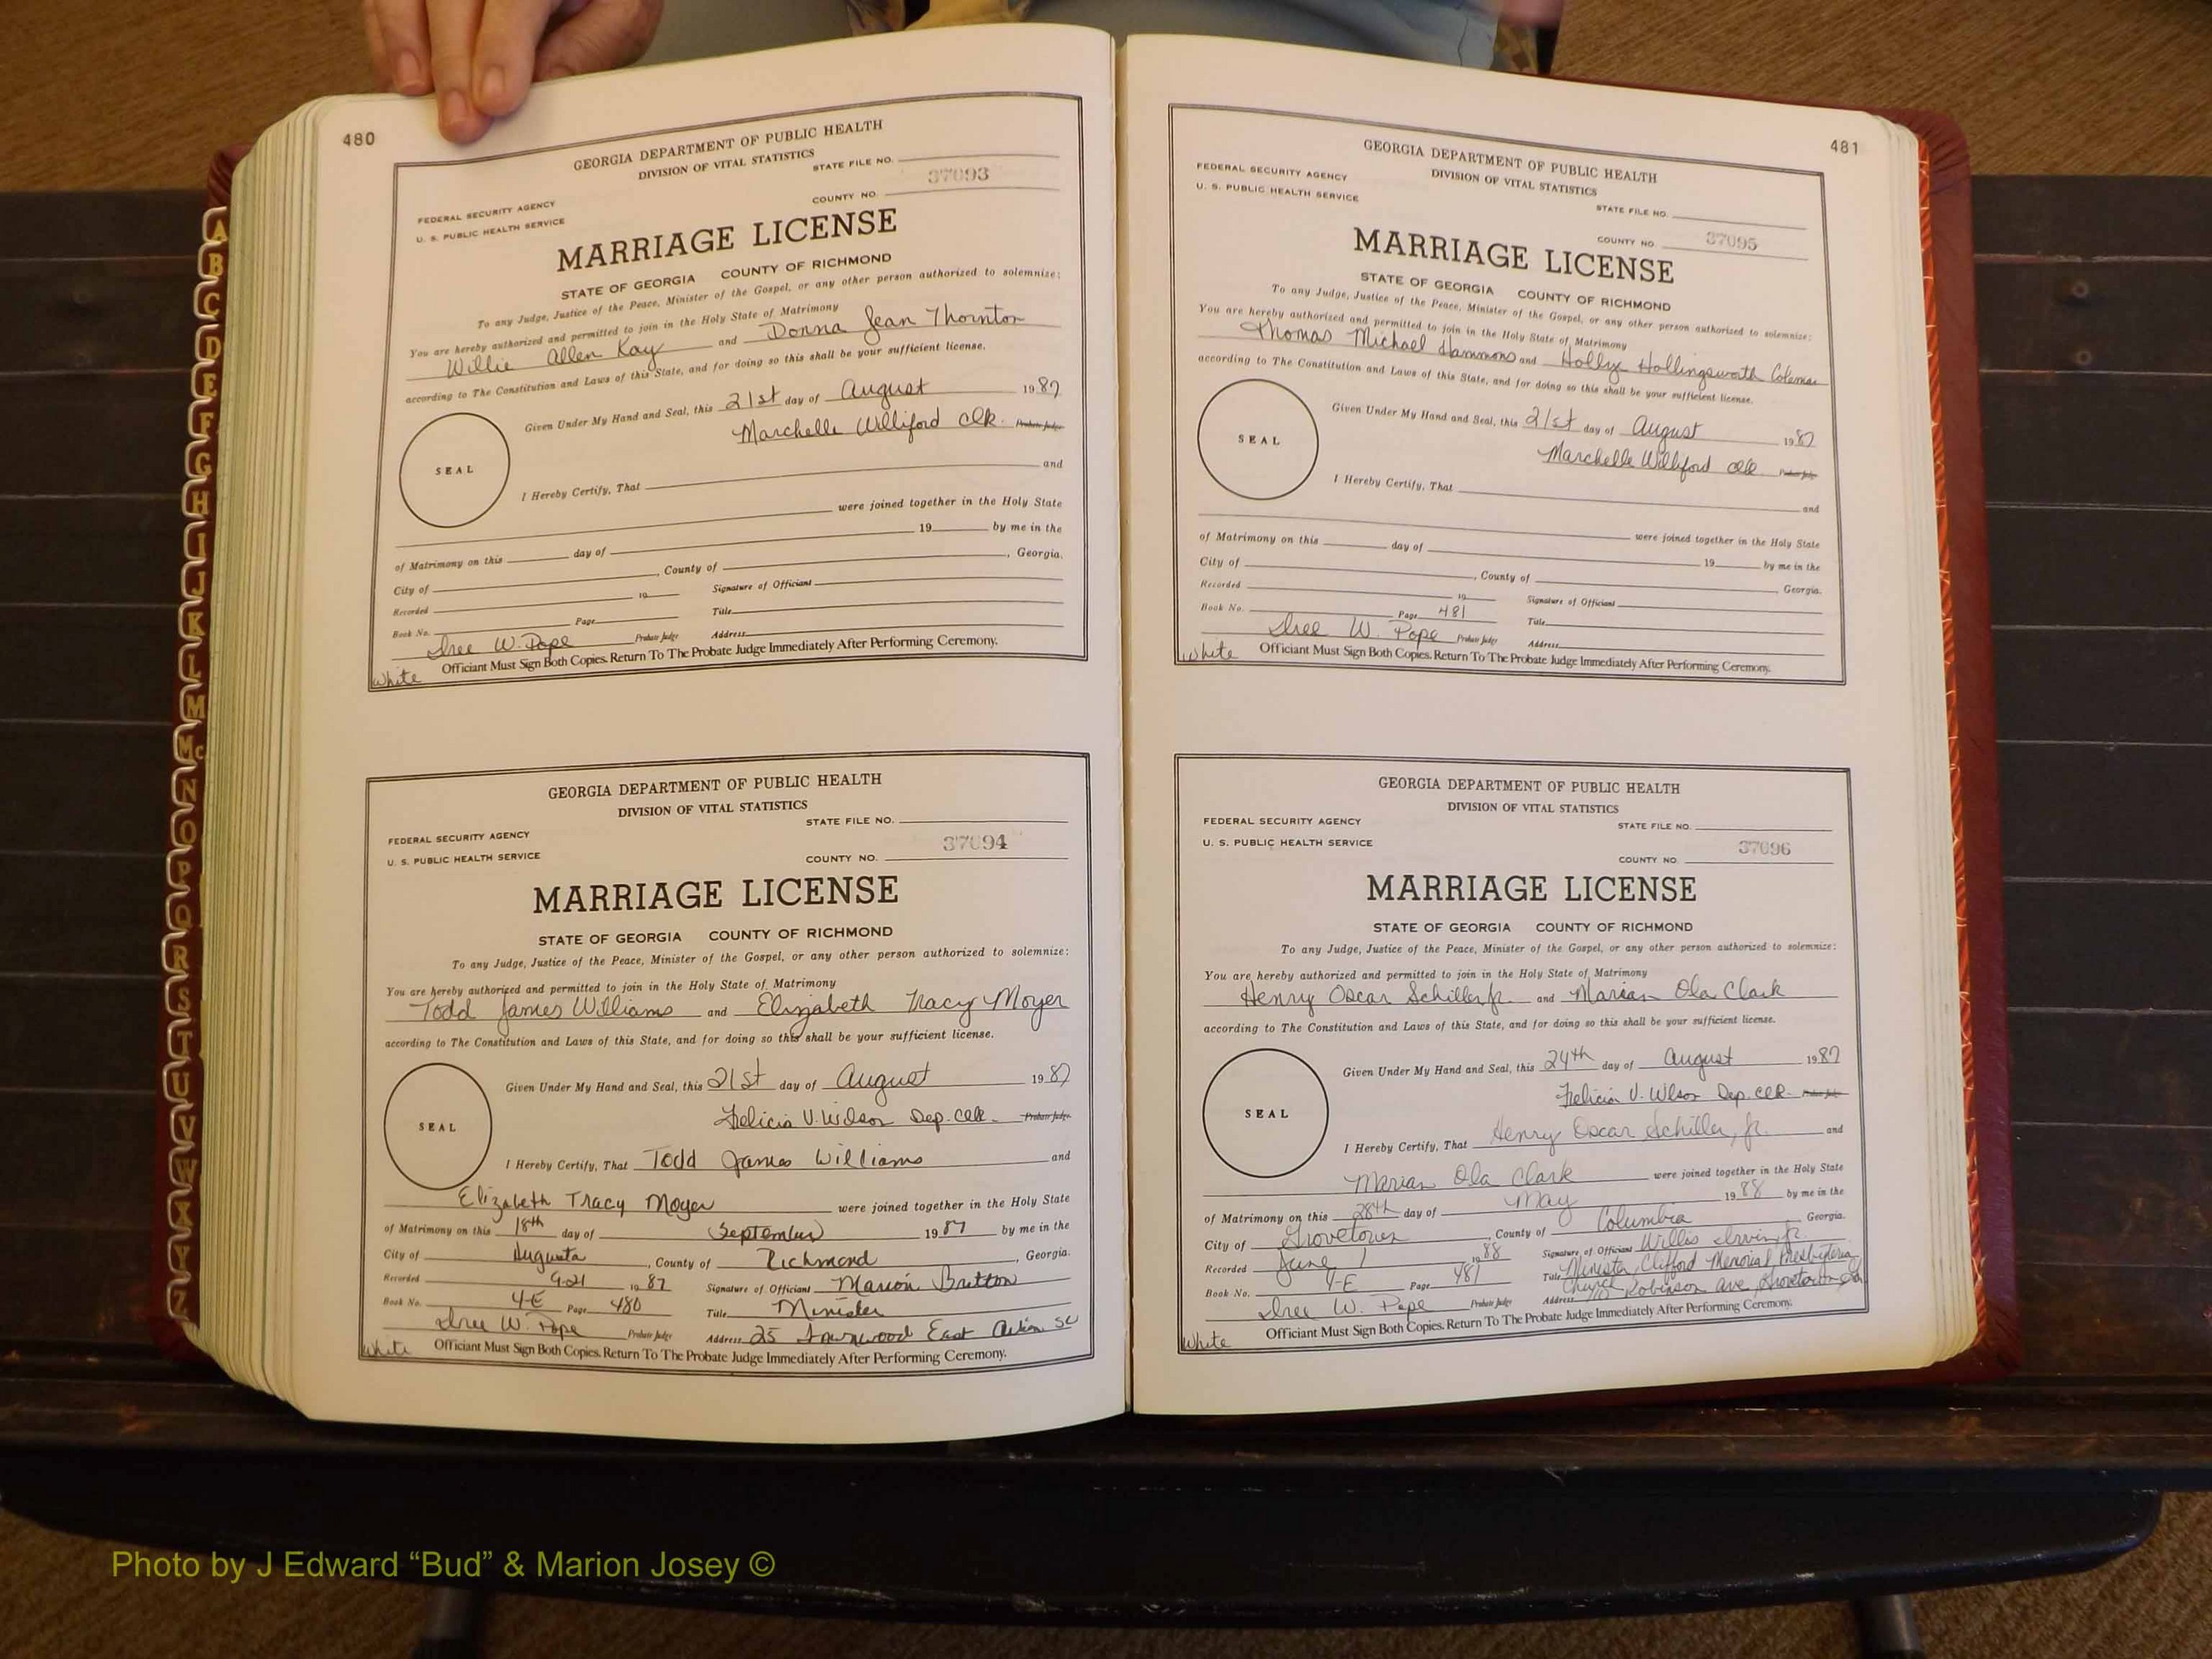 480
GEORGIA DEPARTMENT OF PUBLIC HEALTH
DIVISION OF VITAL STATISTICS
STATE FILE NO.
FEDERAL SECURITY AGENCY
U. S. PUBLIC HEALTH SERVICE
COUNTY NO. 37093
MARRIAGE LICENSE
STATE OF GEORGIA COUNTY OF RICHMOND
To any Judge, Justice of the Peace, Minister of the Gospel, or any other person authorized to solemnize:
You are hereby authorized and permitted to join in the Holy State of Matrimony
Willie Allen Kay and Donna Jean Thornton
according to The Constitution and Laws of this State, and for doing so this shall be your sufficient license.
Given Under My Hand and Seal, this 21st day of August 1987
Marchelle Williford Clk. Probate Judge
SEAL
I Hereby Certify, That and
were joined together in the Holy State
of Matrimony on this day of 19 by me in the
City of , County of , Georgia.
Recorded 19 Signature of Officiant
Book No. Page Title
W. Pope Probate Judge Address
White Officiant Must Sign Both Copies. Return To The Probate Judge Immediately After Performing Ceremony.
GEORGIA DEPARTMENT OF PUBLIC HEALTH
DIVISION OF VITAL STATISTICS
STATE FILE NO.
FEDERAL SECURITY AGENCY
U. S. PUBLIC HEALTH SERVICE
COUNTY NO. 37094
MARRIAGE LICENSE
STATE OF GEORGIA COUNTY OF RICHMOND
To any Judge, Justice of the Peace, Minister of the Gospel, or any other person authorized to solemnize:
You are hereby authorized and permitted to join in the Holy State of Matrimony
Todd James Williams and Elizabeth Tracy Moyer
according to The Constitution and Laws of this State, and for doing so this shall be your sufficient license.
Given Under My Hand and Seal, this 21st day of August 1987
Felicia V. Wilson Dep. Clk. Probate Judge
SEAL
I Hereby Certify, That Todd James Williams and
Elizabeth Tracy Moyer were joined together in the Holy State
of Matrimony on this 18th day of September 1987 by me in the
City of Augusta , County of Richmond , Georgia.
Recorded 9-21 1987 Signature of Officiant Marion Britton
Book No. 4-E Page 480 Title Minister
W. Pope Probate Judge Address 25 East Aiken SC
White Officiant Must Sign Both Copies. Return To The Probate Judge Immediately After Performing Ceremony.
481
GEORGIA DEPARTMENT OF PUBLIC HEALTH
DIVISION OF VITAL STATISTICS
FEDERAL SECURITY AGENCY
U. S. PUBLIC HEALTH SERVICE
STATE FILE NO.
COUNTY NO 37095
MARRIAGE LICENSE
STATE OF GEORGIA COUNTY OF RICHMOND
To any Judge, Justice of the Peace, Minister of the Gospel, or any other person authorized to solemnize:
You are hereby authorized and permitted to join in the Holy State of Matrimony
Thomas Michael Hammons and Hollye Hollingsworth Coleman
according to The Constitution and Laws of this State, and for doing so this shall be your sufficient license.
Given Under My Hand and Seal, this 21st day of August 1987
Marchelle Williford Clk Probate Judge
SEAL
I Hereby Certify, That and
were joined together in the Holy State
of Matrimony on this day of 19 by me in the
City of , County of Georgia.
Recorded 19 Signature of Officiant
Book No. Page 481 Title
W. Pope Probate Judge Address
White Officiant Must Sign Both Copies. Return To The Probate Judge Immediately After Performing Ceremony.
GEORGIA DEPARTMENT OF PUBLIC HEALTH
DIVISION OF VITAL STATISTICS
FEDERAL SECURITY AGENCY
STATE FILE NO.
U. S. PUBLIC HEALTH SERVICE
COUNTY NO. 37096
MARRIAGE LICENSE
STATE OF GEORGIA COUNTY OF RICHMOND
To any Judge, Justice of the Peace, Minister of the Gospel, or any other person authorized to solemnize:
You are hereby authorized and permitted to join in the Holy State of Matrimony
Henry Oscar Schiller Jr. and Marian Ola Clark
according to The Constitution and Laws of this State, and for doing so this shall be your sufficient license.
Given Under My Hand and Seal, this 24th day of August 1987
Felicia V. Wilson Dep. Clk. Probate Judge
SEAL
I Hereby Certify, That Henry Oscar Schiller, Jr. and
Marian Ola Clark were joined together in the Holy State
of Matrimony on this 28th day of May 1988 by me in the
City of Grovetown , County of Columbia Georgia.
Recorded June 1 1988 Signature of Officiant Willis Irvin Jr.
Book No. 4-E Page 481 Title Minister, Clifford Memorial Presbyterian
Church
W. Pope Probate Judge Address Robinson Ave, Grovetown Ga
White Officiant Must Sign Both Copies. Return To The Probate Judge Immediately After Performing Ceremony.
A
B
C
D
E
F
G
H
I
J
K
L
M
Mc
N
O
P
Q
R
S
T
U
V
W
X
Y
Z
Photo by J Edward “Bud” & Marion Josey ©